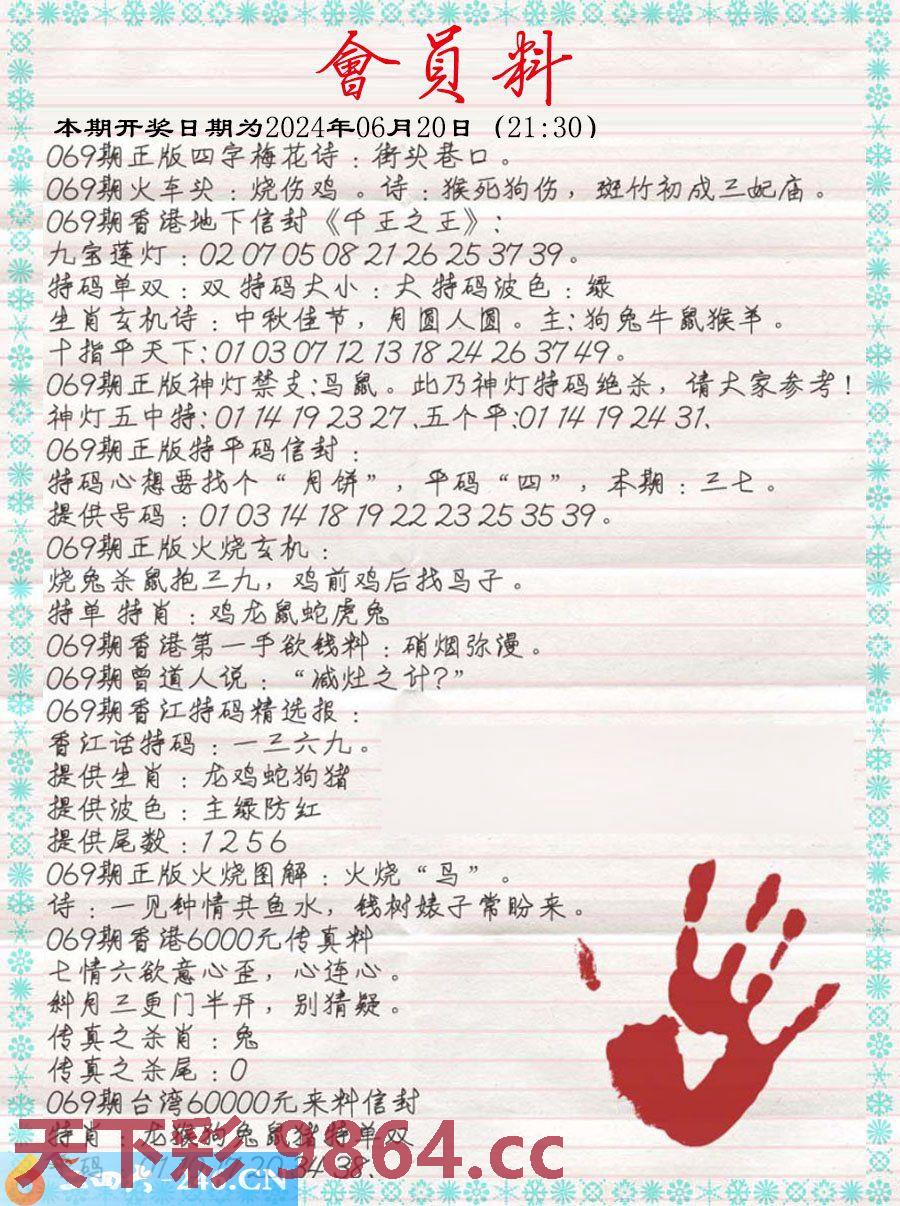 會員料
本期开奖日期为2024年06月20日（21:30）
069期正版四字梅花诗：街头巷口。
069期火车头：烧伤鸡。诗：猴死狗伤，斑竹初成三妃庙。
069期香港地下信封《千王之王》:
九宝莲灯：02 07 05 08 21 26 25 37 39。
特码单双：双 特码大小：大 特码波色：绿
生肖玄机诗：中秋佳节，月圆人圆。主:狗兔牛鼠猴羊。
十指平天下:01 03 07 12 13 18 24 26 37 49。
069期正版神灯禁支:鸟鼠。此乃神灯特码绝杀，请大家参考！
神灯五中特:01 14 19 23 27、五个平:01 14 19 24 31、
069期正版特平码信封：
特码心想要找个“月饼”，平码“四”，本期：三七。
提供号码：01 03 14 18 19 22 23 25 35 39。
069期正版火烧玄机：
烧兔杀鼠抱三九，鸡前鸡后找鸟子。
特单 特肖：鸡龙鼠蛇虎兔
069期香港第一手欲钱料：硝烟弥漫。
069期曾道人说：“减灶之计?”
069期香江特码精选报：
香江话特码：一三六九。
提供生肖：龙鸡蛇狗猪
提供波色：主绿防红
提供尾数：1 2 5 6
069期正版火烧图解：火烧“鸟”。
诗：一见钟情共鱼水，钱树婊子常盼来。
069期香港6000元传真料
七情六欲意心歪，心连心。
斜月三更门半开，别猜疑。
传真之杀肖：兔
传真之杀尾：0
069期台湾60000元来料信封
特肖：龙猴狗兔鼠猪特单双
20 34 38、
天下彩 9864.cc
246.CN